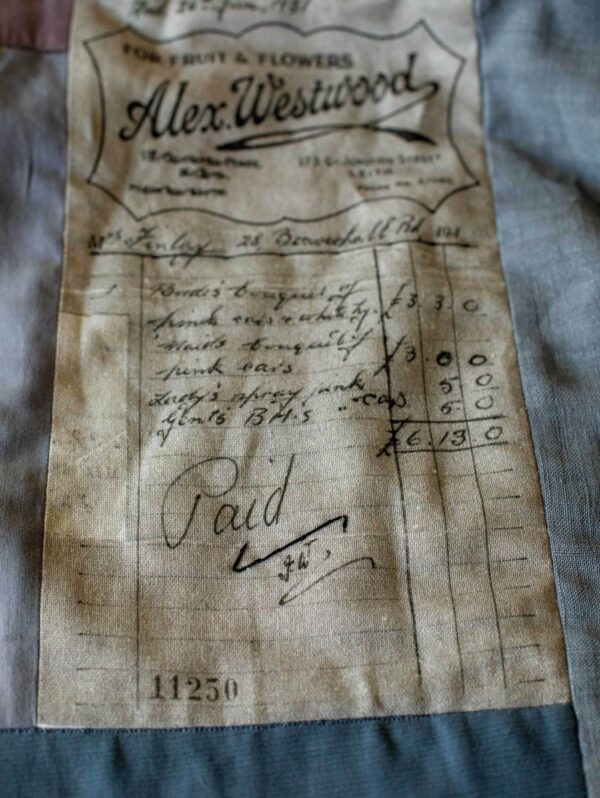 FOR FRUIT & FLOWERS
Alex. Westwood
LEITH
Mrs Finlay 25, Beaverhall Rd 191
Bride's bouquet of £3. 3. 0
pink cars & white
Maids bouquet of
pink cars £3. 0 0
Lady's spray pink cars 5 0
Gents B.H.S " 5. 0
£6. 13 0
Paid
J.W.
11250